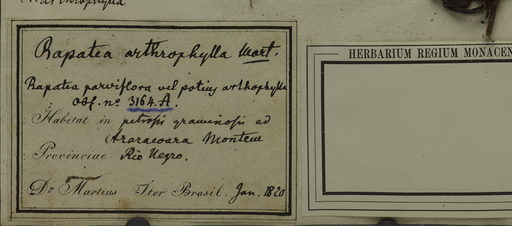 arthrophylla
Rapatea arthrophylla Mart.
Rapatea parviflora vel potius arthrophylla
Obs. nº 3164. A.
Habitat in petrosis graminosis ad
Araracoara Montem
Provinciae Rio Negro.
Dr Martius Iter Brasil. Jan. 1820
HERBARIUM REGIUM MONACEN